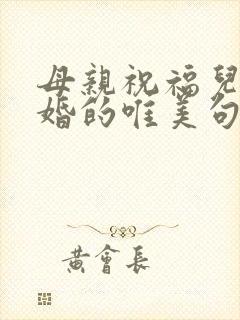 母親祝福兒
婚的唯美句
黃會長